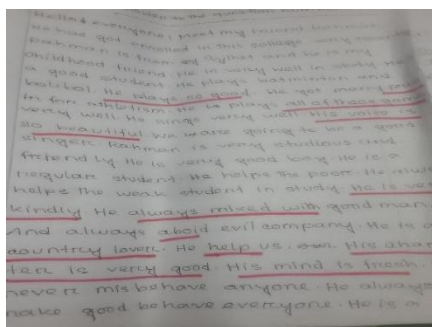 Hello! everyone! Meet my friend Rahman.
we had got enrolled in this college very
Rahman is from Sylhet and he is my
childhood friend. He is very well in study. He
a good student. He plays badminton and
bolibol. He plays is good. He got many
in for. He plays all of these game
very well. He sings very well His voice is
so beautiful we ware going to be a good
singer. Rahman is very studious and
friendly He is very good boy. He is a
regular student. He helps the poor. He
helps the weak student in study. He is ver
kindly He always mixed with good man.
And always aboid evil company. He is a
country lover. He help us. His char
ter is very good. His mind is fresh.
never misbehave anyone. He always
make good behave everyone. He is a